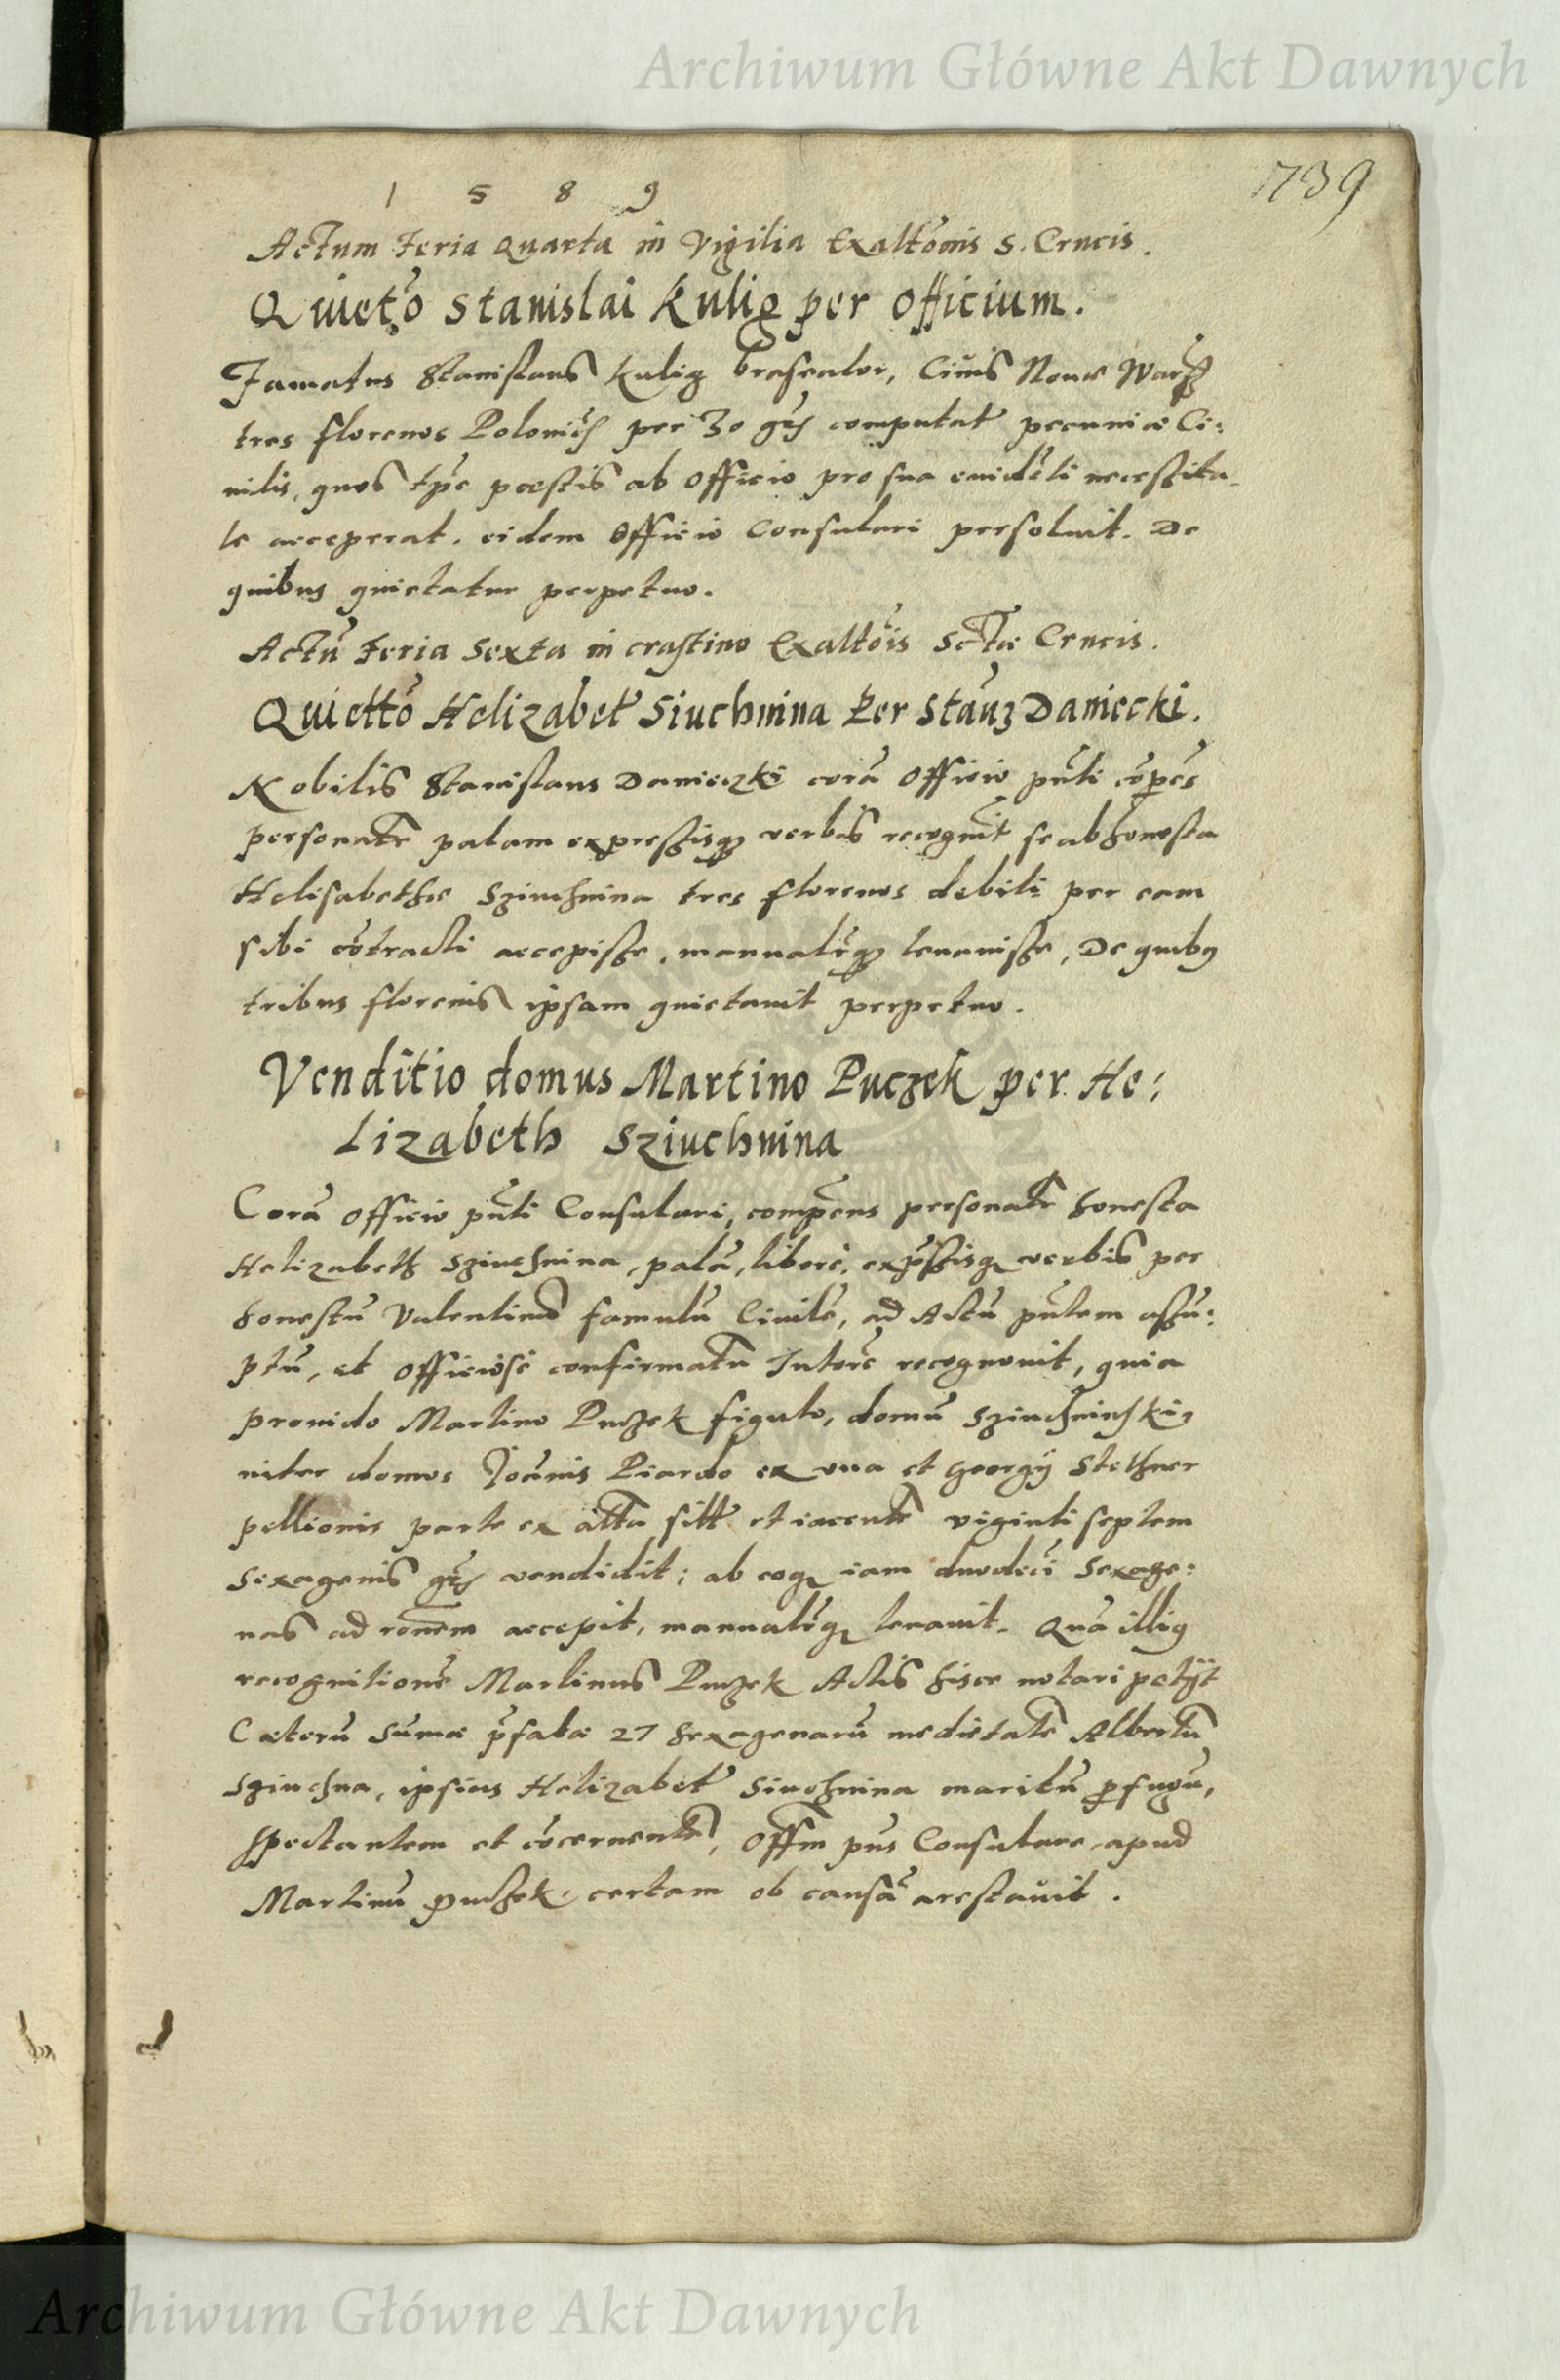 Archiwum Główne Akt Dawnych
739
1 5 8 9
Actum Feria Quarta in Vigilia Exaltõnis S. Crucis.
Quietõ Stanislai Kulig per Officium.
Famatus Stanislaus Kulig braseator, Civis Novae Warß
tres florenos Polonić per 30 grš computat pecuniae Ci:
vilis, quos tp̃e pestis ab Officio pro sua evidẽti necessita-
te acceperat. eidem Officio Consulari persolvit. De
quibus quietatur perpetuo.
Actũ Feria Sexta in crastino Exaltõis Sctæ Crucis.
Quiettõ Helizabet Siuchnina Per Stãuz Daniecki.
Nobilis Stanislaus Danieczki corã Officio pñti cõpẽs
personalr palam expressisq verbis recognit se ab honesta
Helisabethæ Sziuchnina tres florenos debiti per eam
sibi cõtracti accepisse, manualr̃q levavisse, De quibq
tribus florenis ipsam quietavit perpetuo.
Venditio domus Martino Puczek per He:
lizabeth Sziuchnina
Corã Officio pñti Consulari, compẽns personalr honesta
Helizabeth Sziuchnina, palã, liberè, exp̃ssisq verbis per
honestũ Valentinũ famulũ Civilẽ, ad Actũ pñtem assũ:
ptũ, et Officiosè confirmatũ Tutorẽ recognovit, quia
provido Martino Puczek figulo, domũ Sziuchninskiĩ
inter domos Joãnis Piardo ex una et Georgij Stethner
pellionis parte ex alta sitt et iacentẽ viginti septem
Sexagenis grš vendidit; ab eoq iam duodecĩ Sexage:
nas ad rõnem accepit, manualr̃q levavit. Quã illiq
recognitionẽ Martinus Puczek Actis hisce notari petijt
Cæterũ Sumæ p̃fatæ 27 sexagenarũ medietatẽ Albertũ
Sziuchna, ipsius Helizabet Siuchnina maritũ p̃fugũ,
spectantem et cõcernentẽ, Offm pñs Consulare apud
Martinũ Puczek, certam ob causã arestavit.
Archiwum Główne Akt Dawnych